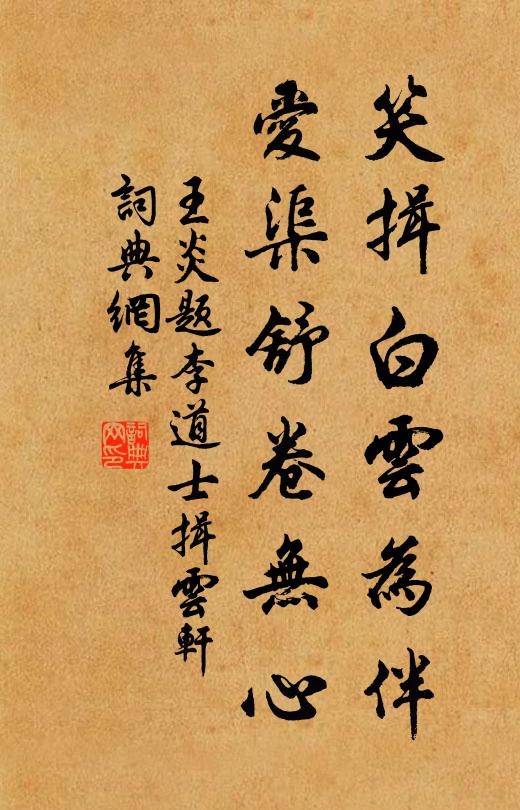 笑揖白雲為伴
愛渠舒卷無心
王炎题李道士揖雲軒
詞典網集
詞典
网印